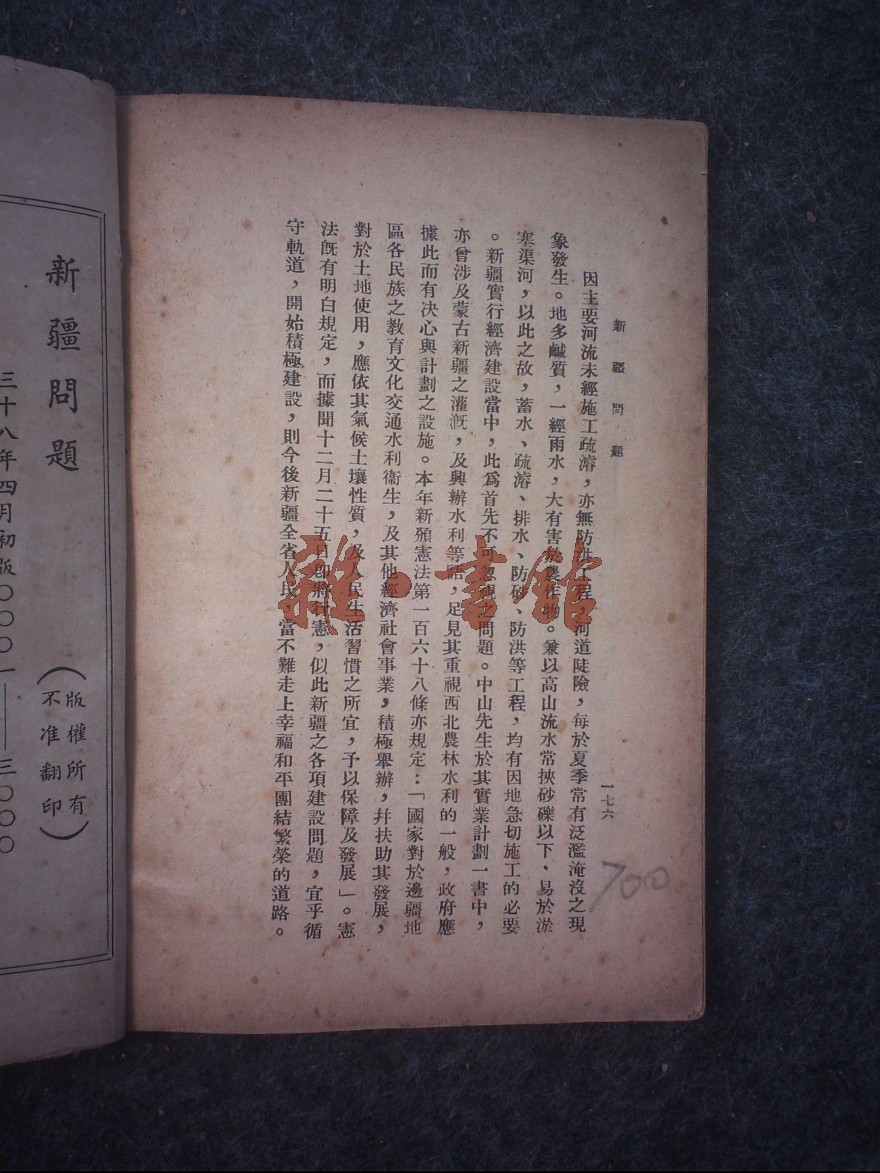 新疆問題
一七六
因主要河流未經施工疏濬，亦無防洪工程，河道陡險，每於夏季常有泛濫淹沒之現
象發生。地多鹹質，一經雨水，大有害於農作物。兼以高山流水常挾砂礫以下，易於淤
塞渠河，以此之故，蓄水、疏濬、排水、防砂、防洪等工程，均有因地急切施工的必要
。新疆實行經濟建設當中，此爲首先不可忽視之問題。中山先生於其實業計劃一書中，
亦曾涉及蒙古新疆之灌漑，及興辦水利等語，足見其重視西北農林水利的一般，政府應
據此而有决心與計劃之設施。本年新頒憲法第一百六十八條亦規定：「國家對於邊疆地
區各民族之教育文化交通水利衞生，及其他經濟社會事業，積極舉辦，幷扶助其發展，
對於土地使用，應依其氣候土壤性質，及人民生活習慣之所宜，予以保障及發展」。憲
法旣有明白規定，而據聞十二月二十五日卽將行憲，似此新疆之各項建設問題，宜乎循
守軌道，開始積極建設，則今後新疆全省人民，當不難走上幸福和平團結繁榮的道路。
700
雜·書館
新疆問題
（版權所有
不准翻印）
三十八年四月初版〇〇〇一——三〇〇〇